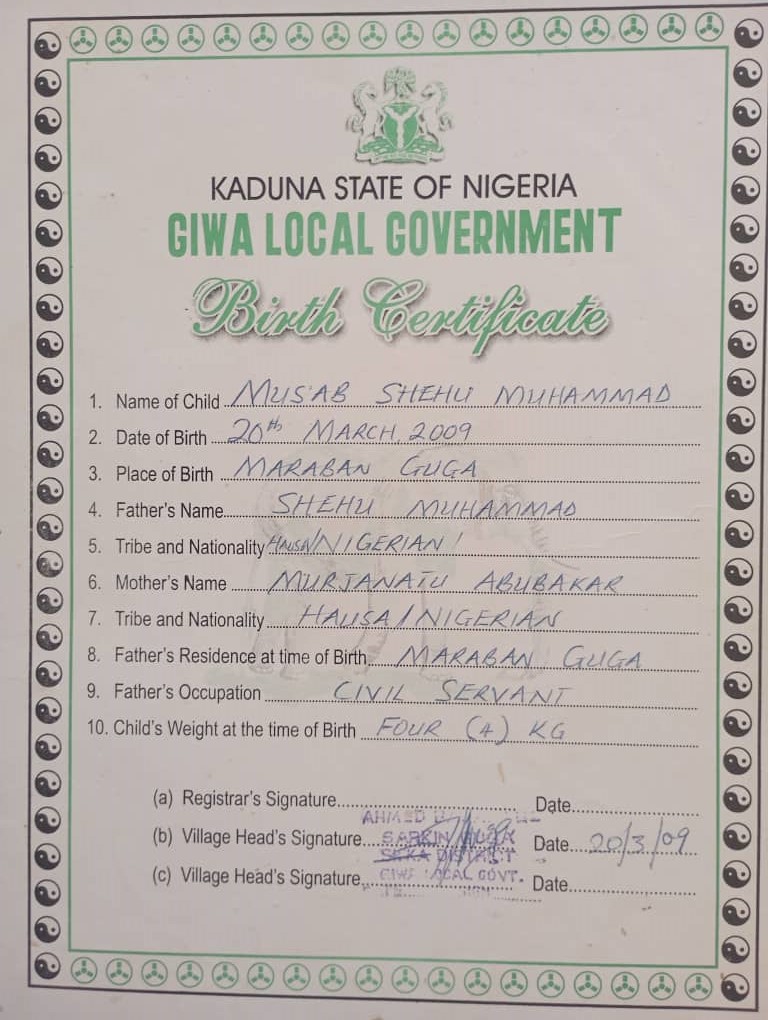 KADUNA STATE OF NIGERIA
GIWA LOCAL GOVERNMENT
Birth Certificate
1. Name of Child MUS'AB SHEHU MUHAMMAD
2. Date of Birth 20th MARCH, 2009
3. Place of Birth MARABAN GUGA
4. Father's Name SHEHU MUHAMMAD
5. Tribe and Nationality HAUSA/NIGERIAN
6. Mother's Name MURJANATU ABUBAKAR
7. Tribe and Nationality HAUSA/NIGERIAN
8. Father's Residence at time of Birth MARABAN GUGA
9. Father's Occupation CIVIL SERVANT
10. Child's Weight at the time of Birth FOUR (4) KG
(a) Registrar's Signature Date
AHMED
(b) Village Head's Signature SARKIN Date 20/3/09
DISTRICT
(c) Village Head's Signature LOCAL GOVT. Date